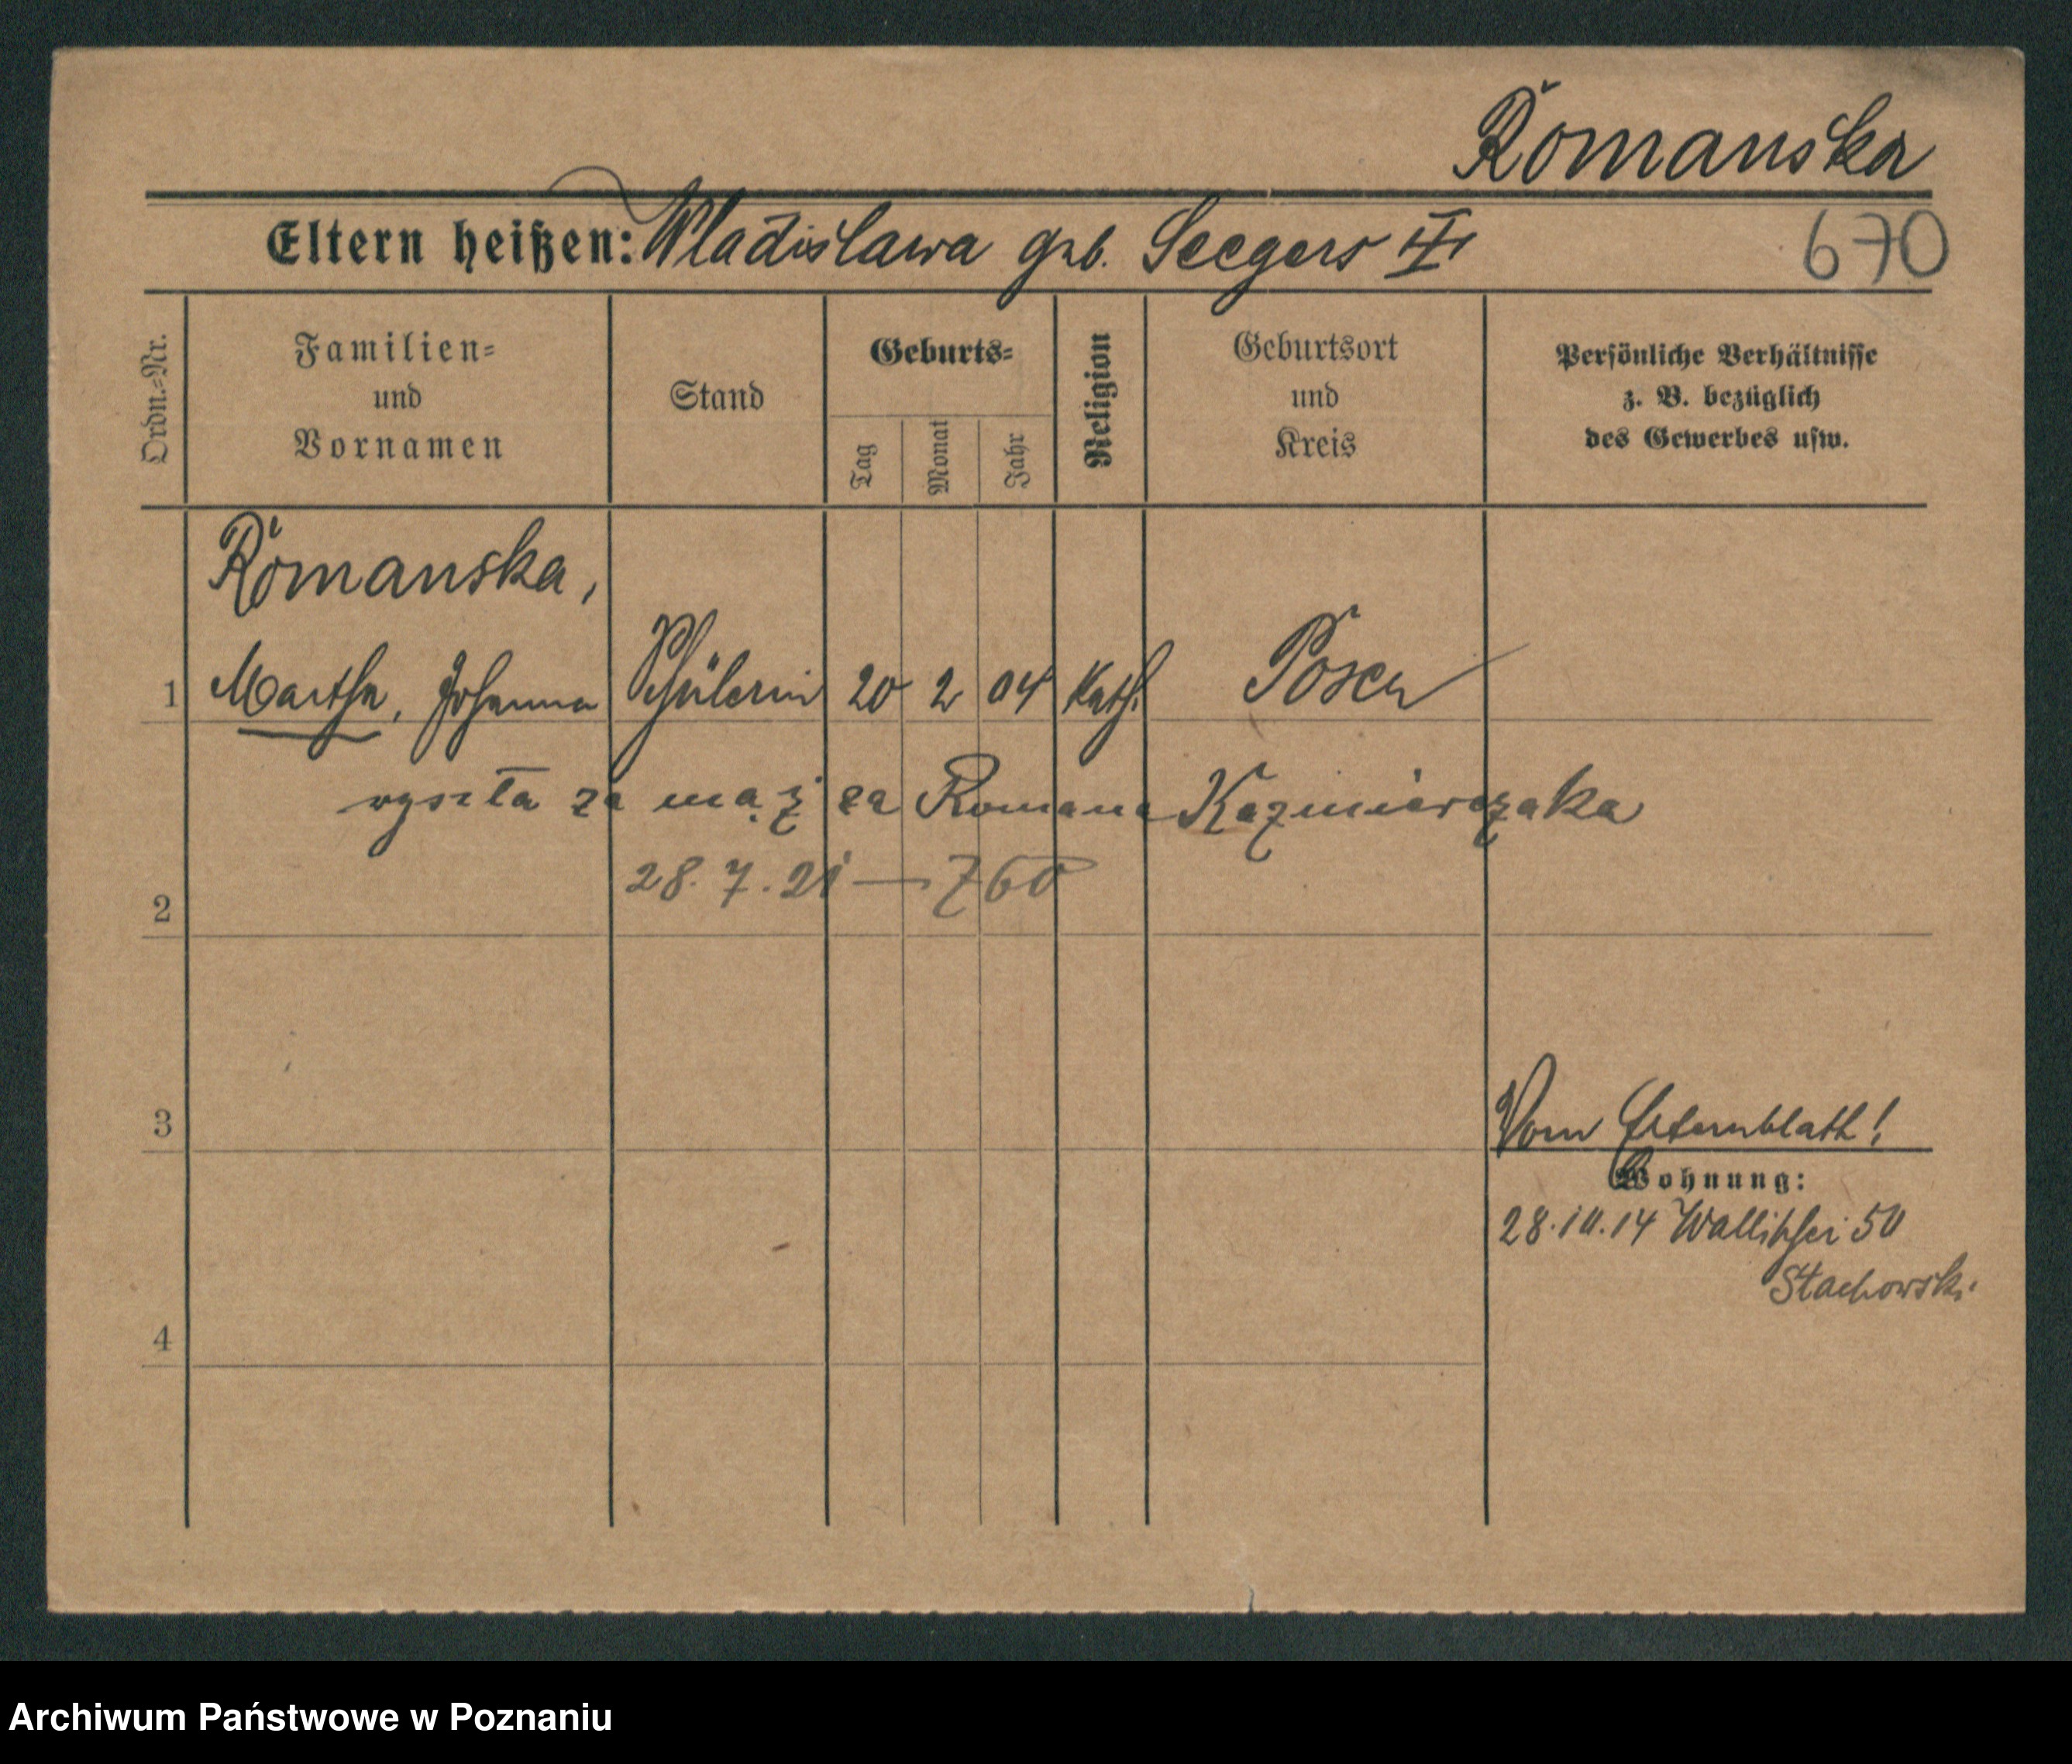 Romanska
Eltern heißen: Wladislawa geb. Seegers II
670
Ordn.=Nr.
Familien=
und
Vornamen
Stand
Geburts=
Tag
Monat
Jahr
Religion
Geburtsort
und
Kreis
Persönliche Verhältnisse
z. B. bezüglich
des Gewerbes usw.
Romanska,
1 Martha, Johanna Schülerin 20 2 04 Kath. Posen
wyszła za mąż za Romana Kazmierczaka
28.7.21 — 760
2
3
Vom Elternblatt!
Wohnung:
28.10.14 Wallischei 50
Stachowski
4
Archiwum Państwowe w Poznaniu